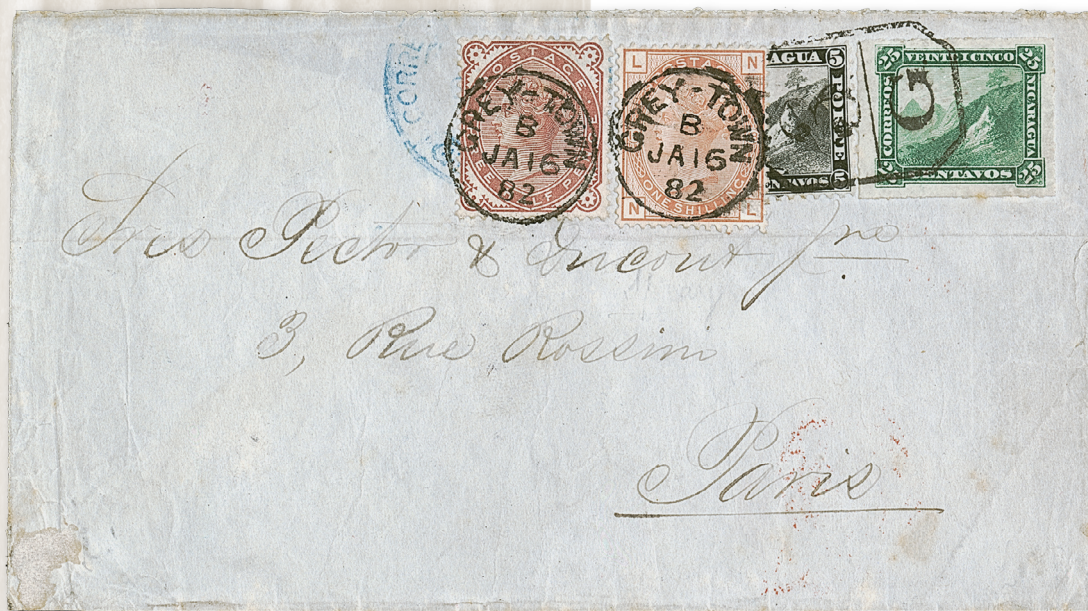 CORRE
POSTAGE
GREY-TOWN
B
JA 16
82
L N
GREY-TOWN
B
JA 16
82
ONE SHILLING
N L
AGUA 5
PORTE
5
25 VEINTE I CINCO 25
CORREOS
NICARAGUA
25 CENTAVOS 25
G
Pector & Ducout Jne
3, Rue Rossini
Paris